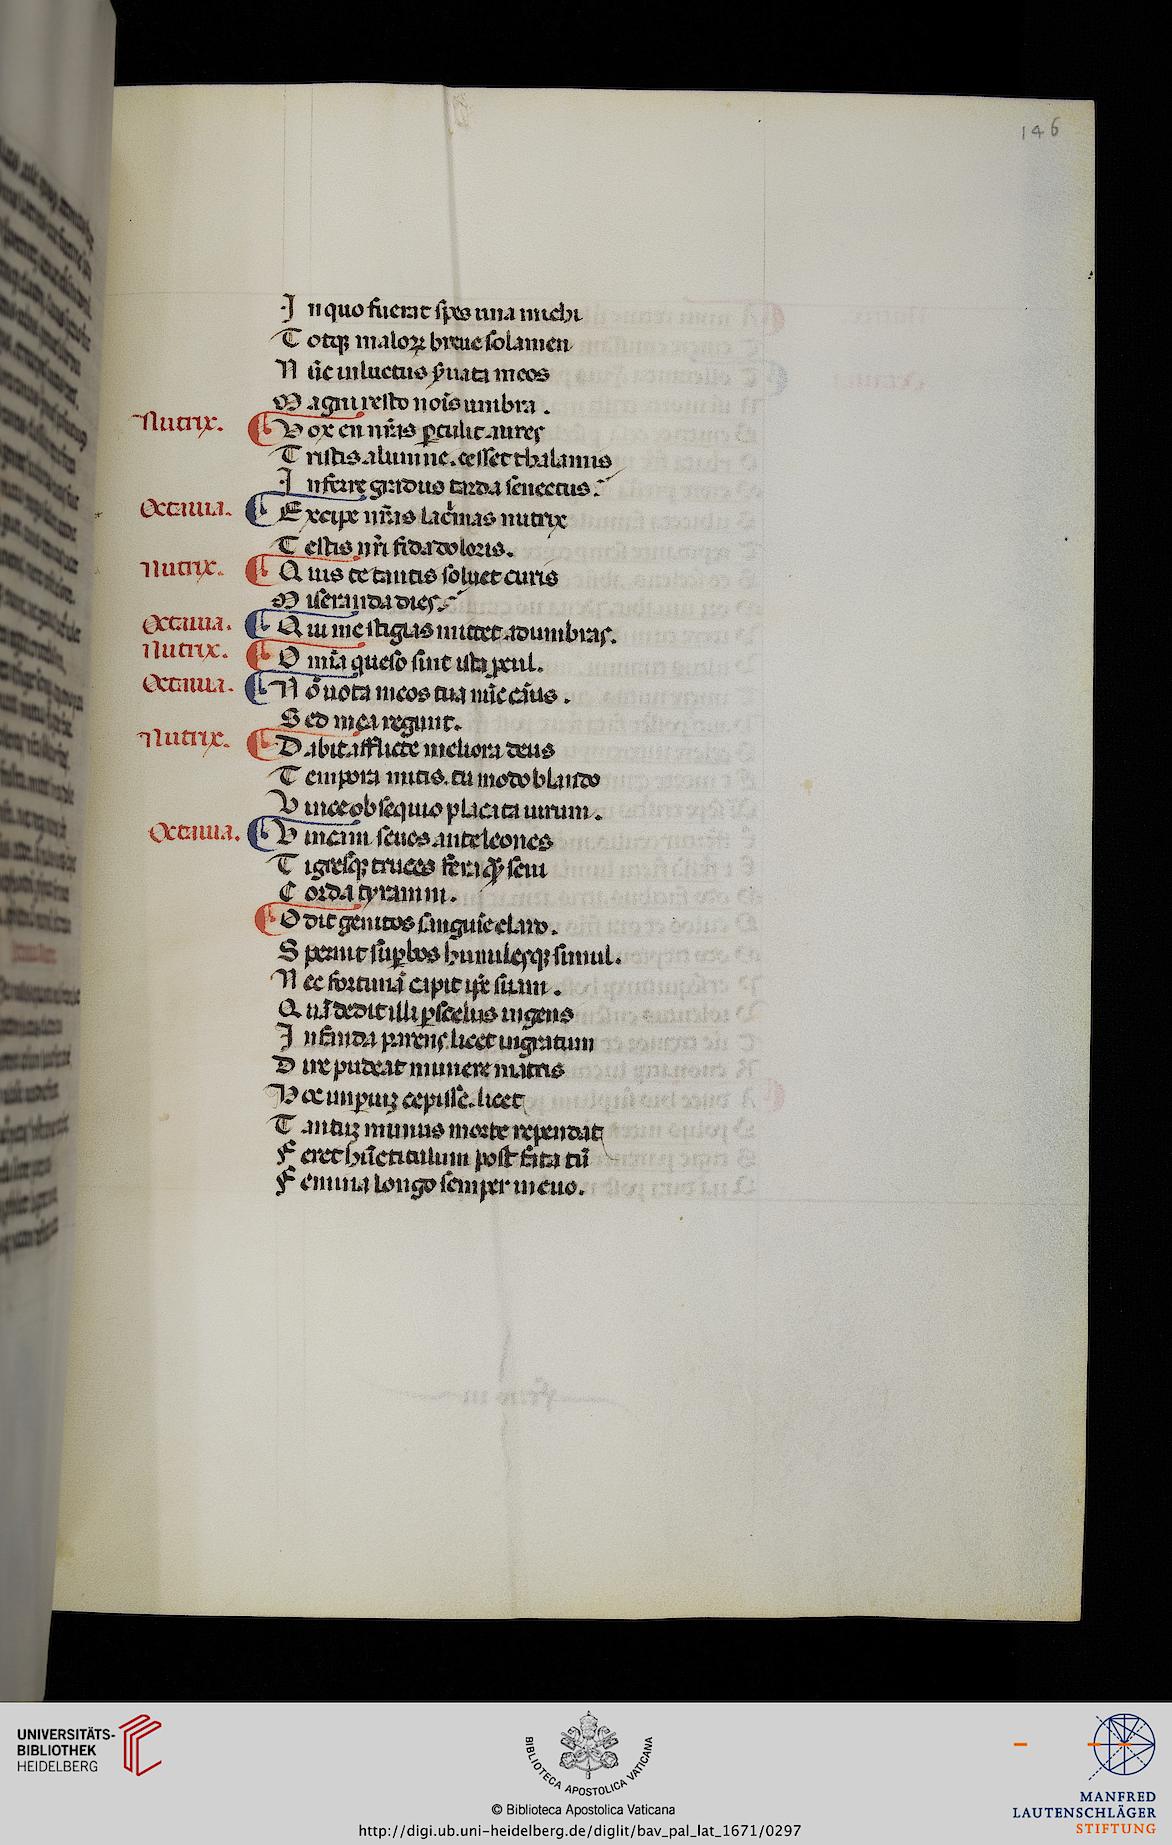 146
I n quo fuerat spes una michi
T otq; maloꝝ breue solamen
N ūc inluctus ẜuata meos
M agni resto noīs umbra .
Nutrix. V ox en nr̄as ꝑculit aures
T ristis alumne. cesset thalamis
I nferre gradus tarda senectus.
Octauia. E xcipe nr̄as lac̄mas nutrix
T estis nr̄i fida doloris.
Nutrix. Q uis te tantis soluet curis
M iseranda dies.
Octauia. Q ui me stigias mittet adumbras.
Nutrix. O mīa queso sint ista ꝓcul.
Octauia. N ō uota meos tua nūc cāus .
S ed mea regunt.
Nutrix. D abit afflicte meliora deus
T empora mitis. tu modo blando
V ince obsequio placata uirum .
Octauia. V incam seuos ante leones
T igresq; truces fera qͣꝫ seui
C orda tyranni .
O dit genitos sanguīe claro .
S pernit suꝑbos humilesq; simul .
N ec fortunā capit ip̄e suam .
Q uā dedit illi ꝑ scelus ingens
I nfanda parens licet ingratum
D ire pudeat munere matris
H oc imꝑiuꝫ cepisse. licet
T antuꝫ munus morte rependat
F eret hūc titulum post fata tn̄
F emina longo semper in euo .
UNIVERSITÄTS-
BIBLIOTHEK
HEIDELBERG
BIBLIOTECA APOSTOLICA VATICANA
© Biblioteca Apostolica Vaticana
http://digi.ub.uni-heidelberg.de/diglit/bav_pal_lat_1671/0297
MANFRED
LAUTENSCHLÄGER
STIFTUNG